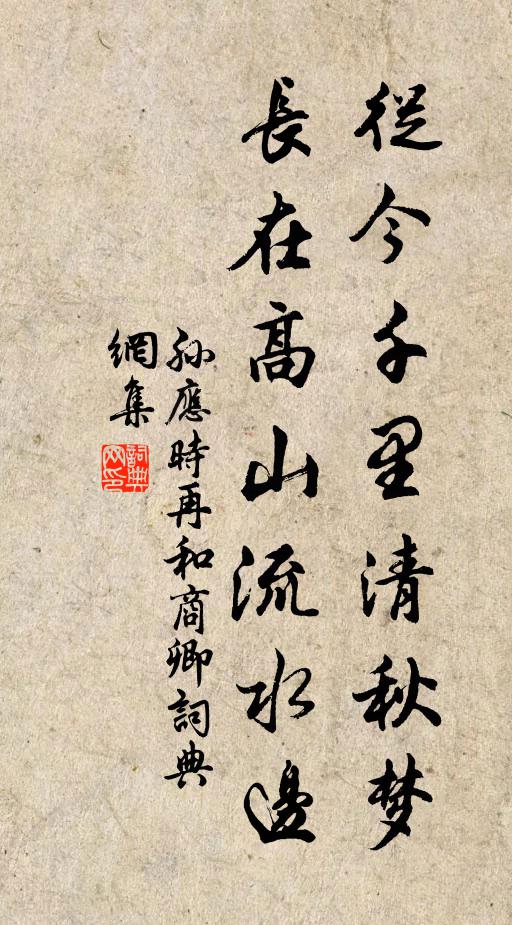 從今千里清秋梦
長在高山流水邊
孫應時再和商卿詞典
網集
詞典
网印